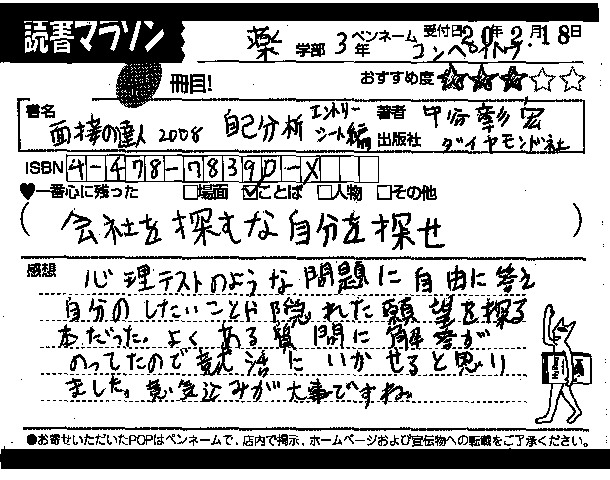 読書マラソン
薬 学部 3年 ペンネーム コンペイトウ 受付日 20年2月18日
冊目! おすすめ度 ★★★☆☆
書名 面接の達人2008 自己分析 エントリーシート編 著者 中谷彰宏
出版社 ダイヤモンド社
ISBN 4-478-78390-X
♥一番心に残った □場面 ☑ことば □人物 □その他
(会社を探むな自分を探せ)
感想 心理テストのような問題に自由に答え
自分のしたいことや隠れた願望を探る
本だった。よくある質問に解答が
のってたので就活にいかせると思い
ました。意気込みが大事ですね。
●お寄せいただいたPOPはペンネームで、店内で掲示、ホームページおよび宣伝物への転載をご了承ください。